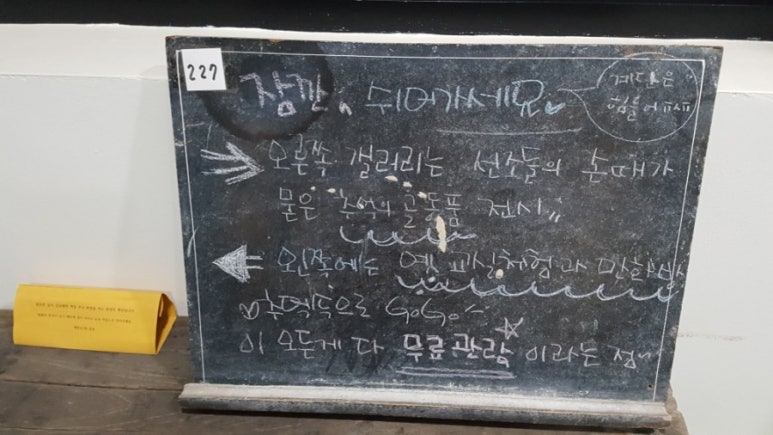 227
잠깐, 쉬어가세요
계단은
힘들어 ㅠㅠ
오른쪽 갤러리는 선조들의 손때가
묻은 추억의 골동품 전시,,
왼쪽에는 옛 교실체험과 만화
추억속으로 GoGo~
이 모든게 다 무료관람 이라는 점~